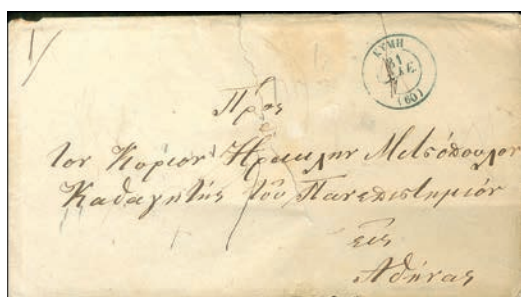 ΚΥΜΗ
31
(60)
Πρὸς
τον Κύριον Ἡρακλην Μιτσόπουλον
Καθαγητής τοῦ Πανεπιστημίου
εις
Αθήνας